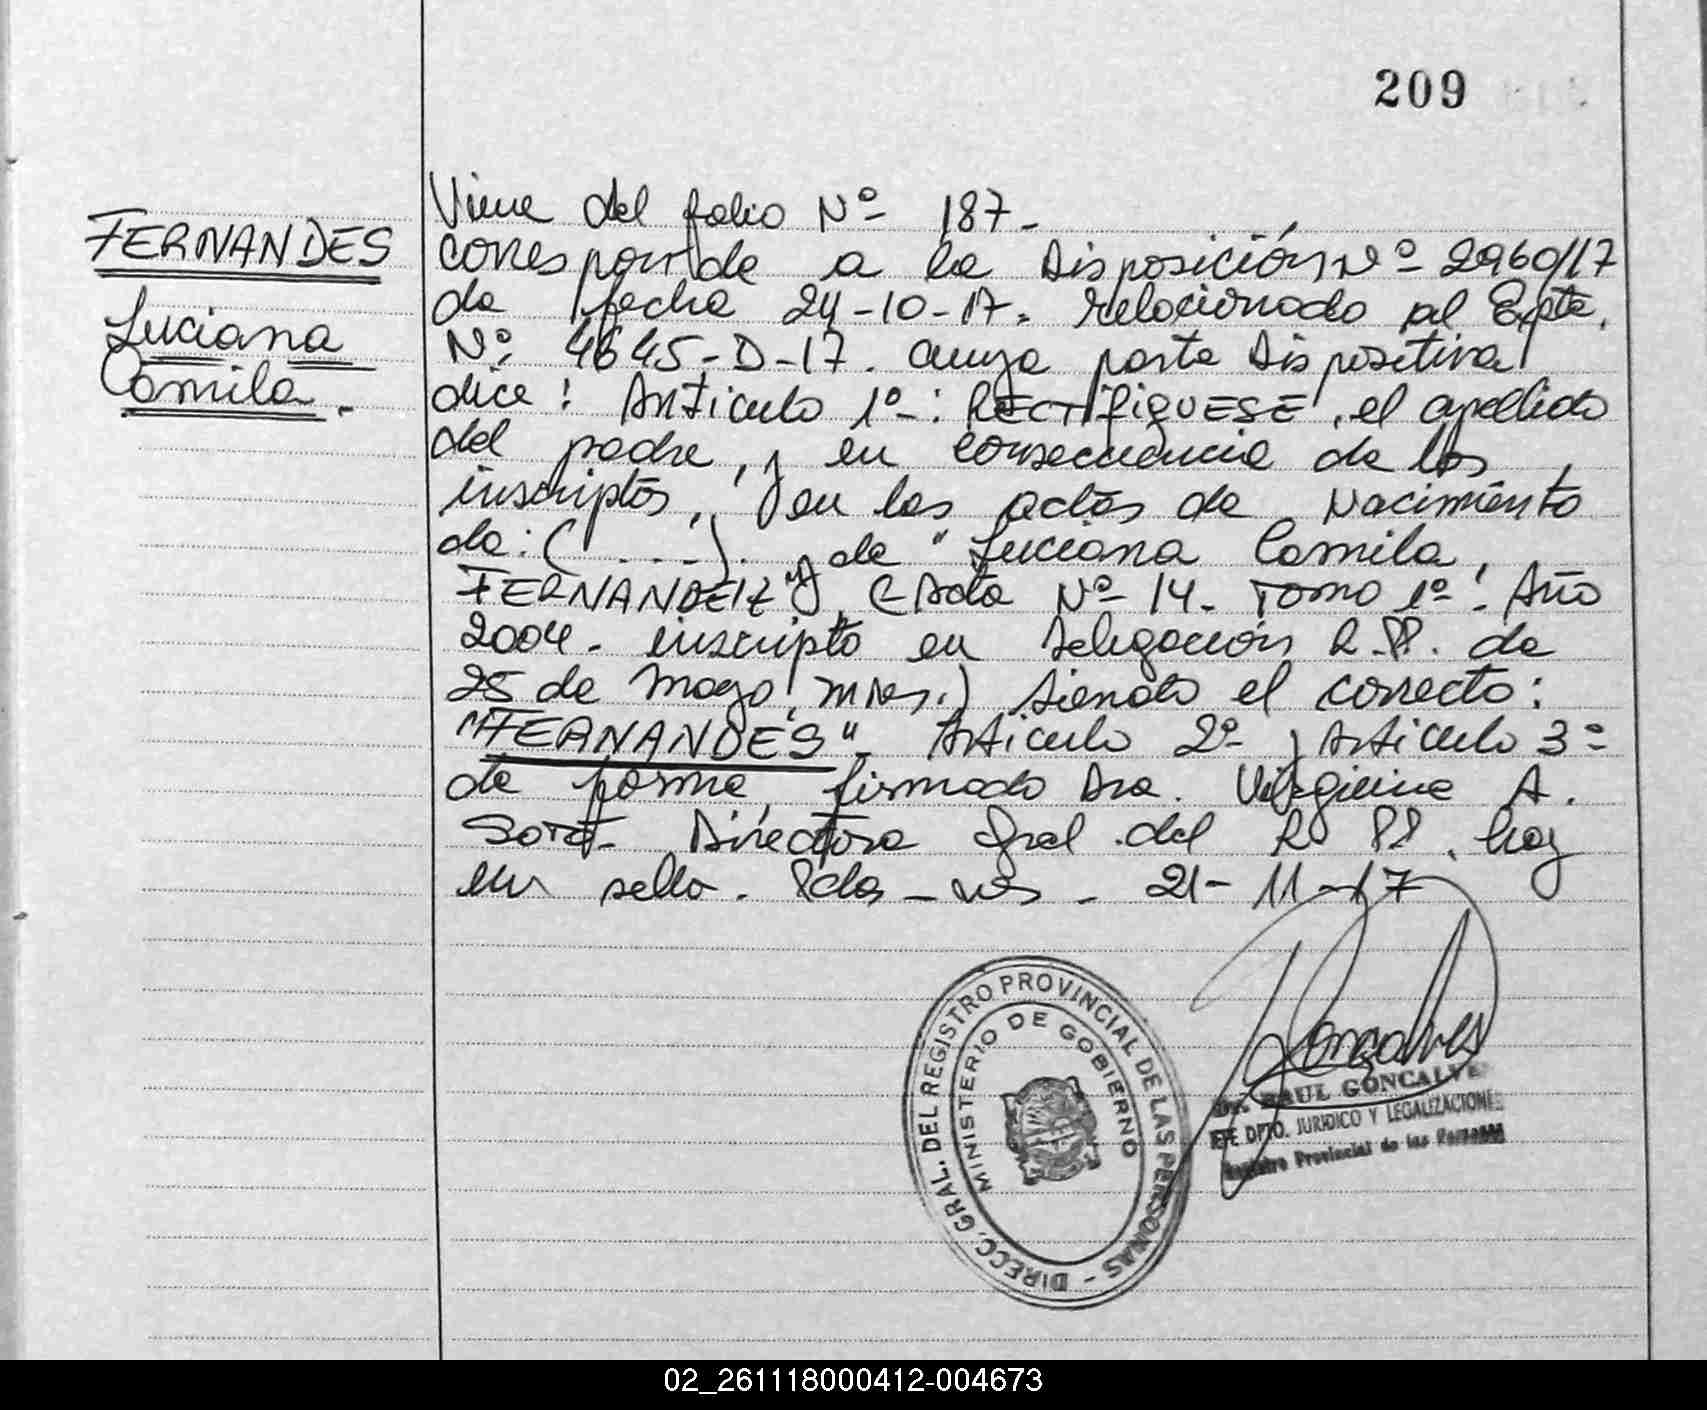 209
FERNANDES
Luciana
Camila.
Viene del folio Nº 187.-
corresponde a la Disposición Nº 2960/17
de fecha 24-10-17. relacionado al Expte.
Nº 4645-D-17. cuya parte dispositiva
dice: Articulo 1º-: RECTIFIQUESE, el apellido
del padre, y en consecuencia de los
inscriptos, en las actas de Nacimiento
de: (....). y de "Luciana Camila,
FERNANDEIZ", (Acta Nº 14. Tomo 1º. Año
2004. inscripto en Delegación R.PP. de
25 de Mayo, Mnes.) siendo el correcto:
"FERNANDES". Articulo 2º y Articulo 3º
de forma, firmado Dra. Virginia A.
Soto. Directora Gral. del R PP. hay
un sello. Pdas - Mnes - 21-11-17
DIRECC. GRAL. DEL REGISTRO PROVINCIAL DE LAS PERSONAS -
MINISTERIO DE GOBIERNO
Goncalves
Dr. RAUL GONCALVES
JEFE DPTO. JURIDICO Y LEGALIZACIONES
Registro Provincial de las Personas
02_261118000412-004673